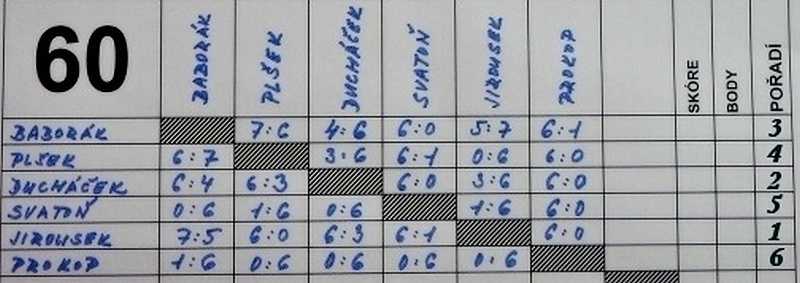 60 BABORÁK PLŠEK DUCHÁČEK SVATOŇ JIROUSEK PROKOP SKÓRE BODY POŘADÍ
BABORÁK 7:6 4:6 6:0 5:7 6:1 3
PLŠEK 6:7 3:6 6:1 0:6 6:0 4
DUCHÁČEK 6:4 6:3 6:0 3:6 6:0 2
SVATOŇ 0:6 1:6 0:6 1:6 6:0 5
JIROUSEK 7:5 6:0 6:3 6:1 6:0 1
PROKOP 1:6 0:6 0:6 0:6 0:6 6